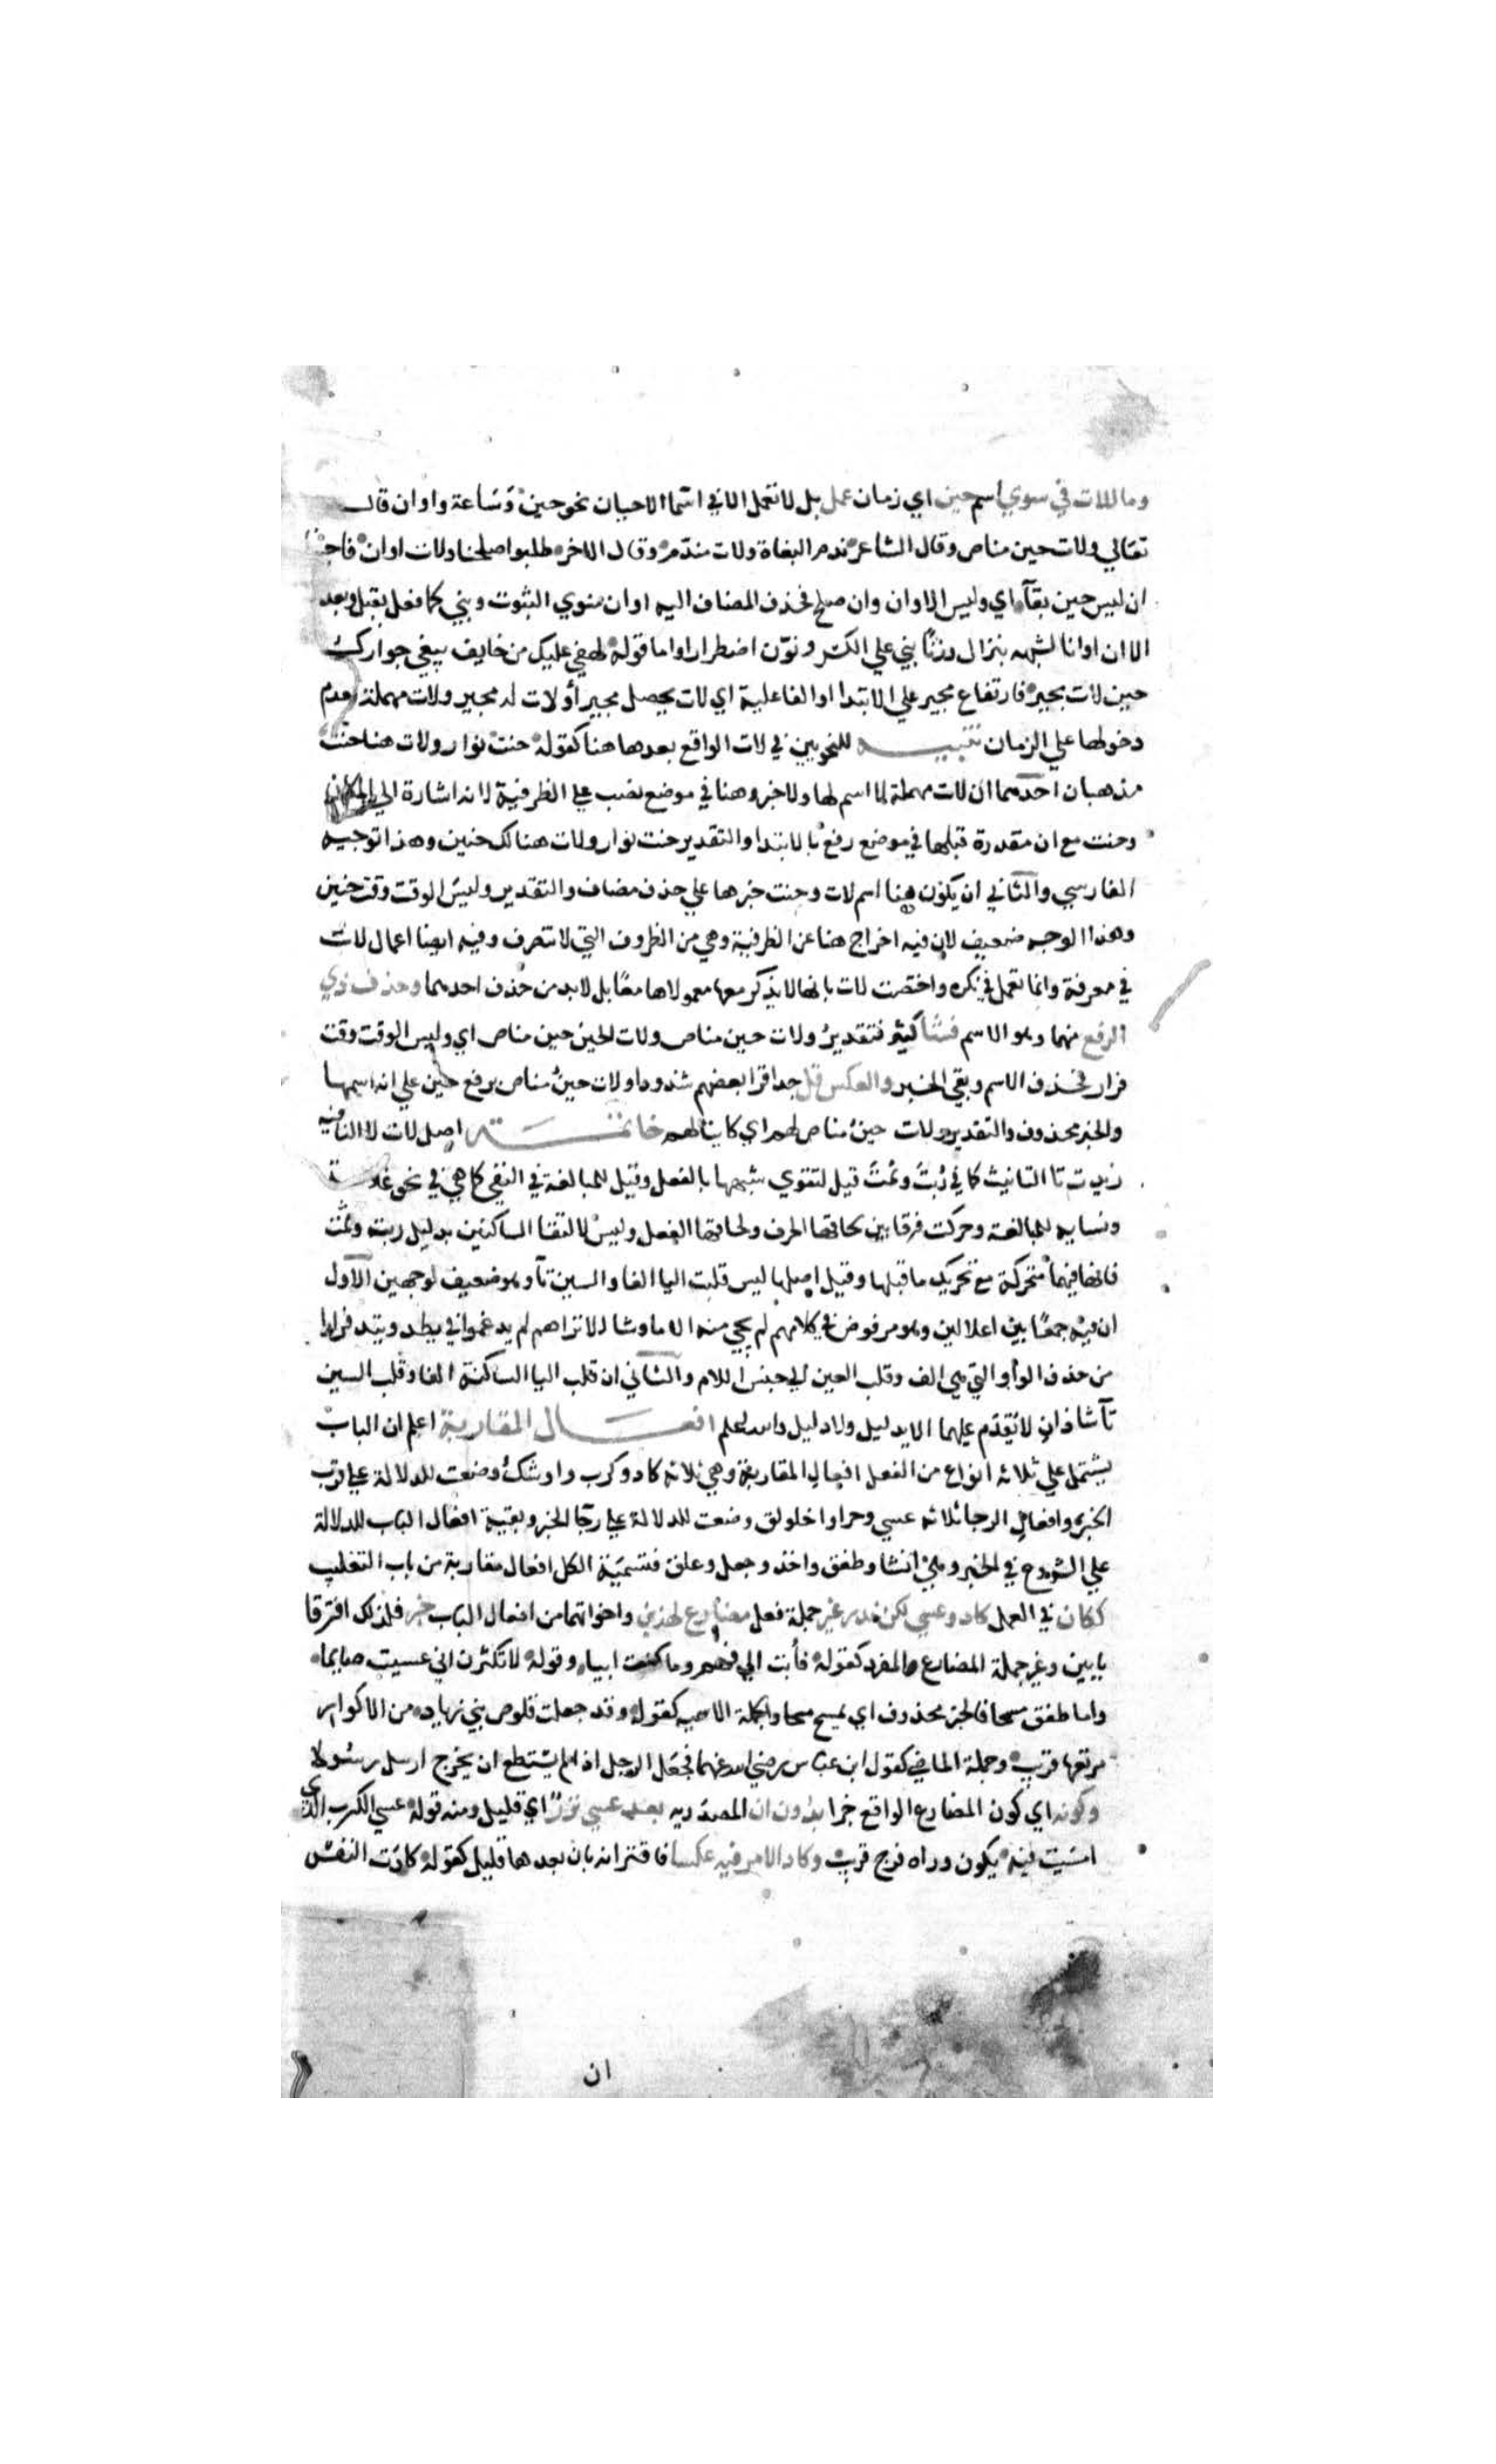 وما للات في سوي اسم حين اي زمان عمل بل لا تعمل الا في اسما الاحيان نحو حين وساعة واوان قال
تعالي ولات حين مناص وقال الشاعر ندم البغاة ولات مندم وقال الاخر طلبوا صلحنا ولات اوان فاجبنا
ان ليس حين بقآ اي وليس الاوان وان صلح فحذف المضاف اليه اوان منوي الثبوت وبني كما فعل بقبل وبعد
الا ان اوانا لشبهه بنزال وزنًا بني علي الكسر ونوّن اضطرارا واما قوله لهفي عليك من خايف يبغي جوارك
حين لات مجير فارتفاع مجير علي الابتدا او الفاعلية اي لات يحصل مجير أو لات له مجير ولات مهملة لعدم
دخولها علي الزمان تنبيه للنحويين في لات الواقع بعدها هنا كقوله حنت نوار ولات هنا حنت
مذهبان احدهما ان لات مهملة لا اسم لها ولا خبر وهنا في موضع نصب علي الظرفية لانه اشارة الي المكان
وحنت مع ان مقدرة قبلها في موضع رفع بالابتدا والتقدير حنت نوار ولات هنالك حنين وهذا توجيه
الفارسي والثاني ان يكون هنا اسم لات وحنت خبرها علي حذف مضاف والتقدير وليس الوقت وقت حنين
وهذا الوجه ضعيف لان فيه اخراج هنا عن الظرفية وهي من الظروف التي لا تتصرف وفيه ايضا اعمال لات
في معرفة وانما تعمل في نكره واختصت لات بانها لا يذكر معها معمولاها معًا بل لا بد من حذف احدهما وحذف ذي
الرفع منهما وهو الاسم فشا كثير فتقدير ولات حين مناص ولات الحين حين مناص اي وليس الوقت وقت
فرار فحذف الاسم وبقي الخبر والعكس قل جدا قرا بعضهم شذوذا ولات حينُ مناص برفع حين علي انه اسمها
والخبر محذوف والتقدير ولات حينُ مناص لهم اي كاينا لهم خاتمة اصل لات لا النافيه
زيدت تا التانيث كما في ربتَ وثمتَ قيل لتقوي شبهها بالفعل وقيل للمبالغة في النفي كما هي في نحو علامة
ونسابه للمبالغة وحركت فرقا بين لحاقها الحرف ولحاقها الفعل وليس لالتقا الساكنين بدليل ربت وثمت
فانها فيهما متحركة مع تحريك ما قبلها وقيل اصلها ليس قلبت اليا الفا والسين تآ وهو ضعيف لوجهين الاول
ان فيه جمعًا بين اعلالين وهو مرفوض في كلامهم لم يجي منه الا ما وشا لا تراهم لم يدغموا في يطد ويتد فرارا
من حذف الواو التي هي الف وقلب العين الي جنس اللام والثاني ان قلب اليا الساكنة الفا وقلب السين
تآ شاذان لا يقدم عليهما الا بدليل ولا دليل والله اعلم افعال المقاربة اعلم ان الباب
يشتمل علي ثلاثه انواع من الفعل افعال المقاربة وهي ثلاثه كاد وكرب واوشك وضعت للدلالة علي قرب
الخبر وافعال الرجا ثلاثه عسي وحرا واخلولق وضعت للدلالة علي رجا الخبر وبقية افعال الباب للدلالة
علي الشروع في الخبر وهي انشا وطفق واخذ وجعل وعلق فتسمية الكل افعال مقاربة من باب التغليب
ككان في العمل كاد وعسي لكن ندر غير جملة فعل مضارع لهذين واخواتهما من افعال الباب خبر فلذلك افترقا
بابين وغير جملة المضارع المفرد كقوله فأبت الي فهم وما كنت ايبا وقوله لا تكثرن اني عسيت صايما
واما طفق مسحا فالخبر محذوف اي يمسح مسحا والجملة الاسميه كقوله وقد جعلت قلوص بني زياد من الاكوار
مرتعها قريب وجملة الماضي كقول ابن عباس رضي الله عنهما فجعل الرجل اذا لم يستطع ان يخرج ارسل رسولا
وكونه اي كون المضارع الواقع خبرا بدون ان المصدريه بعد عسي نزرٌ اي قليل ومنه قوله عسي الكرب الذي
امسيت فيه يكون وراه فرج قريب وكاد الامر فيه عكسا فاقترانه بان بعدها قليل كقوله كادت النفس
ان